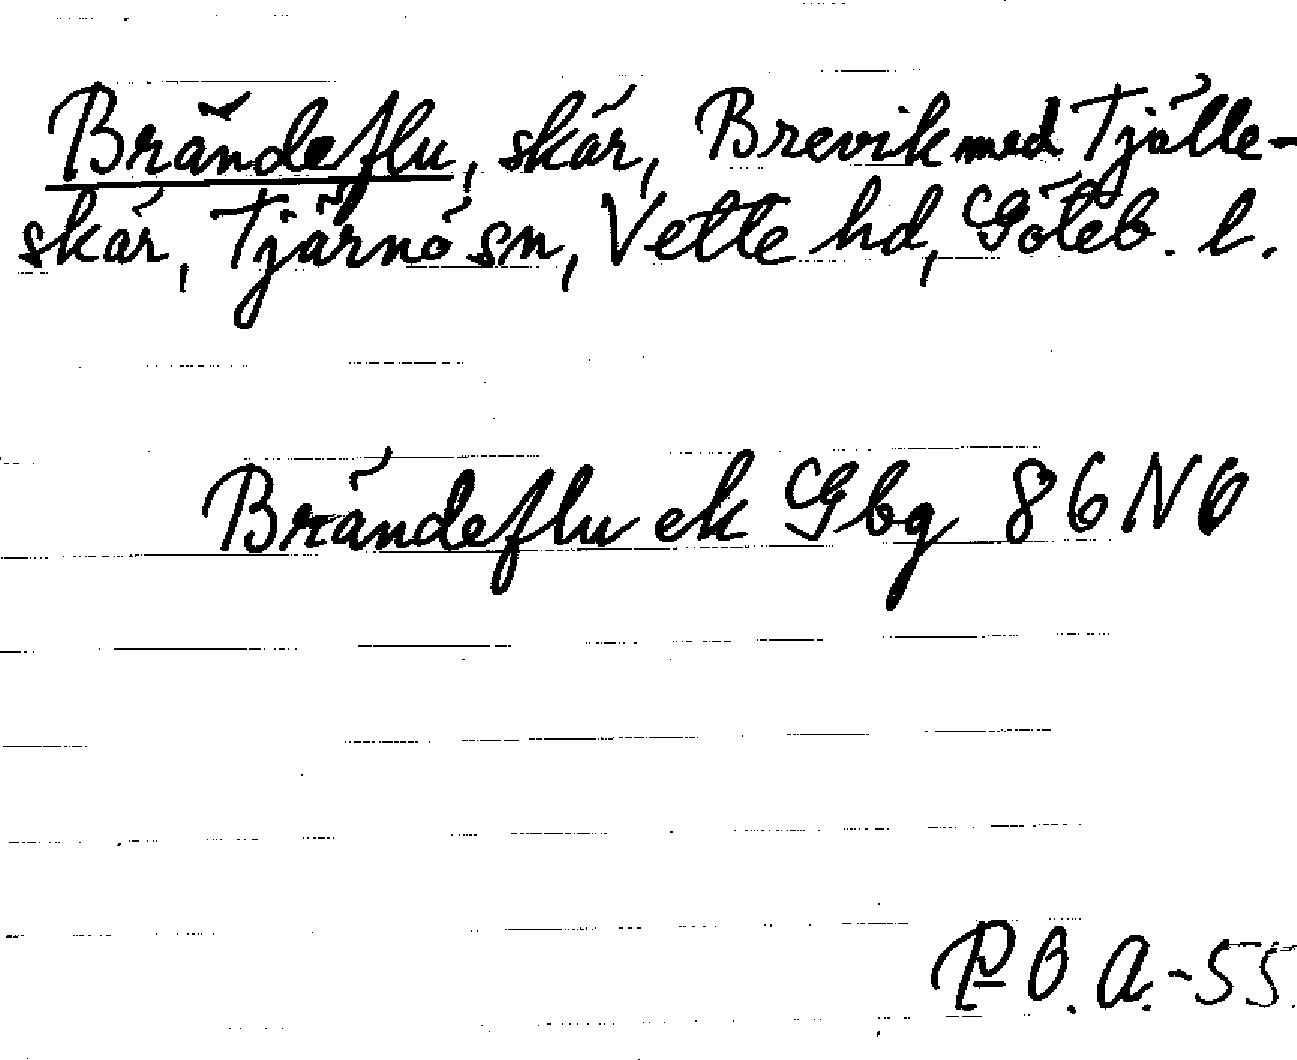 Brändeflu, skär, Brevik med Tjälle-
skär, Tjärnö sn, Vette hd, Göteb. l.
Brändeflu ek Gbg 86 NO
P O. A. -55.